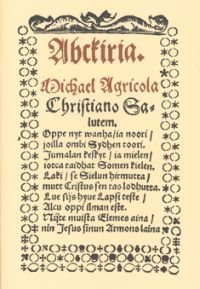 Abckiria.
Michael Agricola
Christiano Sa-
lutem.
Oppe nyt wanha/ ia noori/
joilla ombi Sydhen toori.
Jumalan keskyt/ ia mielen/
iotca taidhat Somen kielen.
Laki/ se Sielun hirmutta/
mutt Cristus sen tas lodhutta.
Lue sijs hyue Lapsi teste/
Alcu oppi ilman este.
Nijte muista Elemes aina/
nin Jesus sinun Armons laina